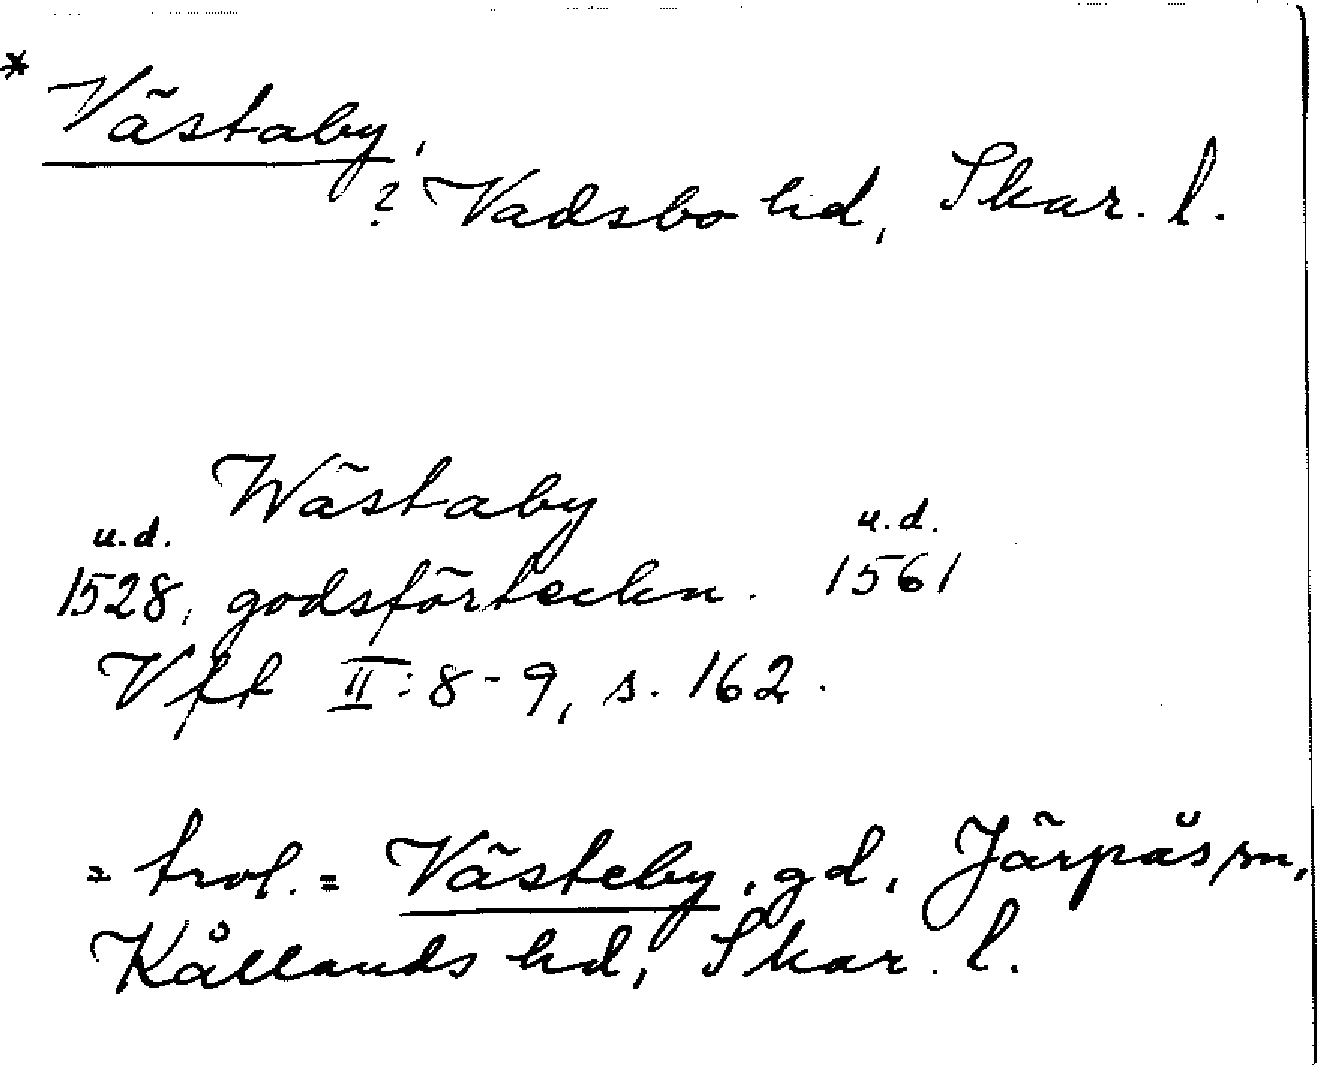 * Västaby,
? Vadsbo hd, Skar. l.
Wästaby
u.d. u.d.
1528, godsförteckn. 1561
Vfft II:8-9, s. 162.
= trol. = Västeby, gd, Järpås sn,
Kållands hd, Skar. l.